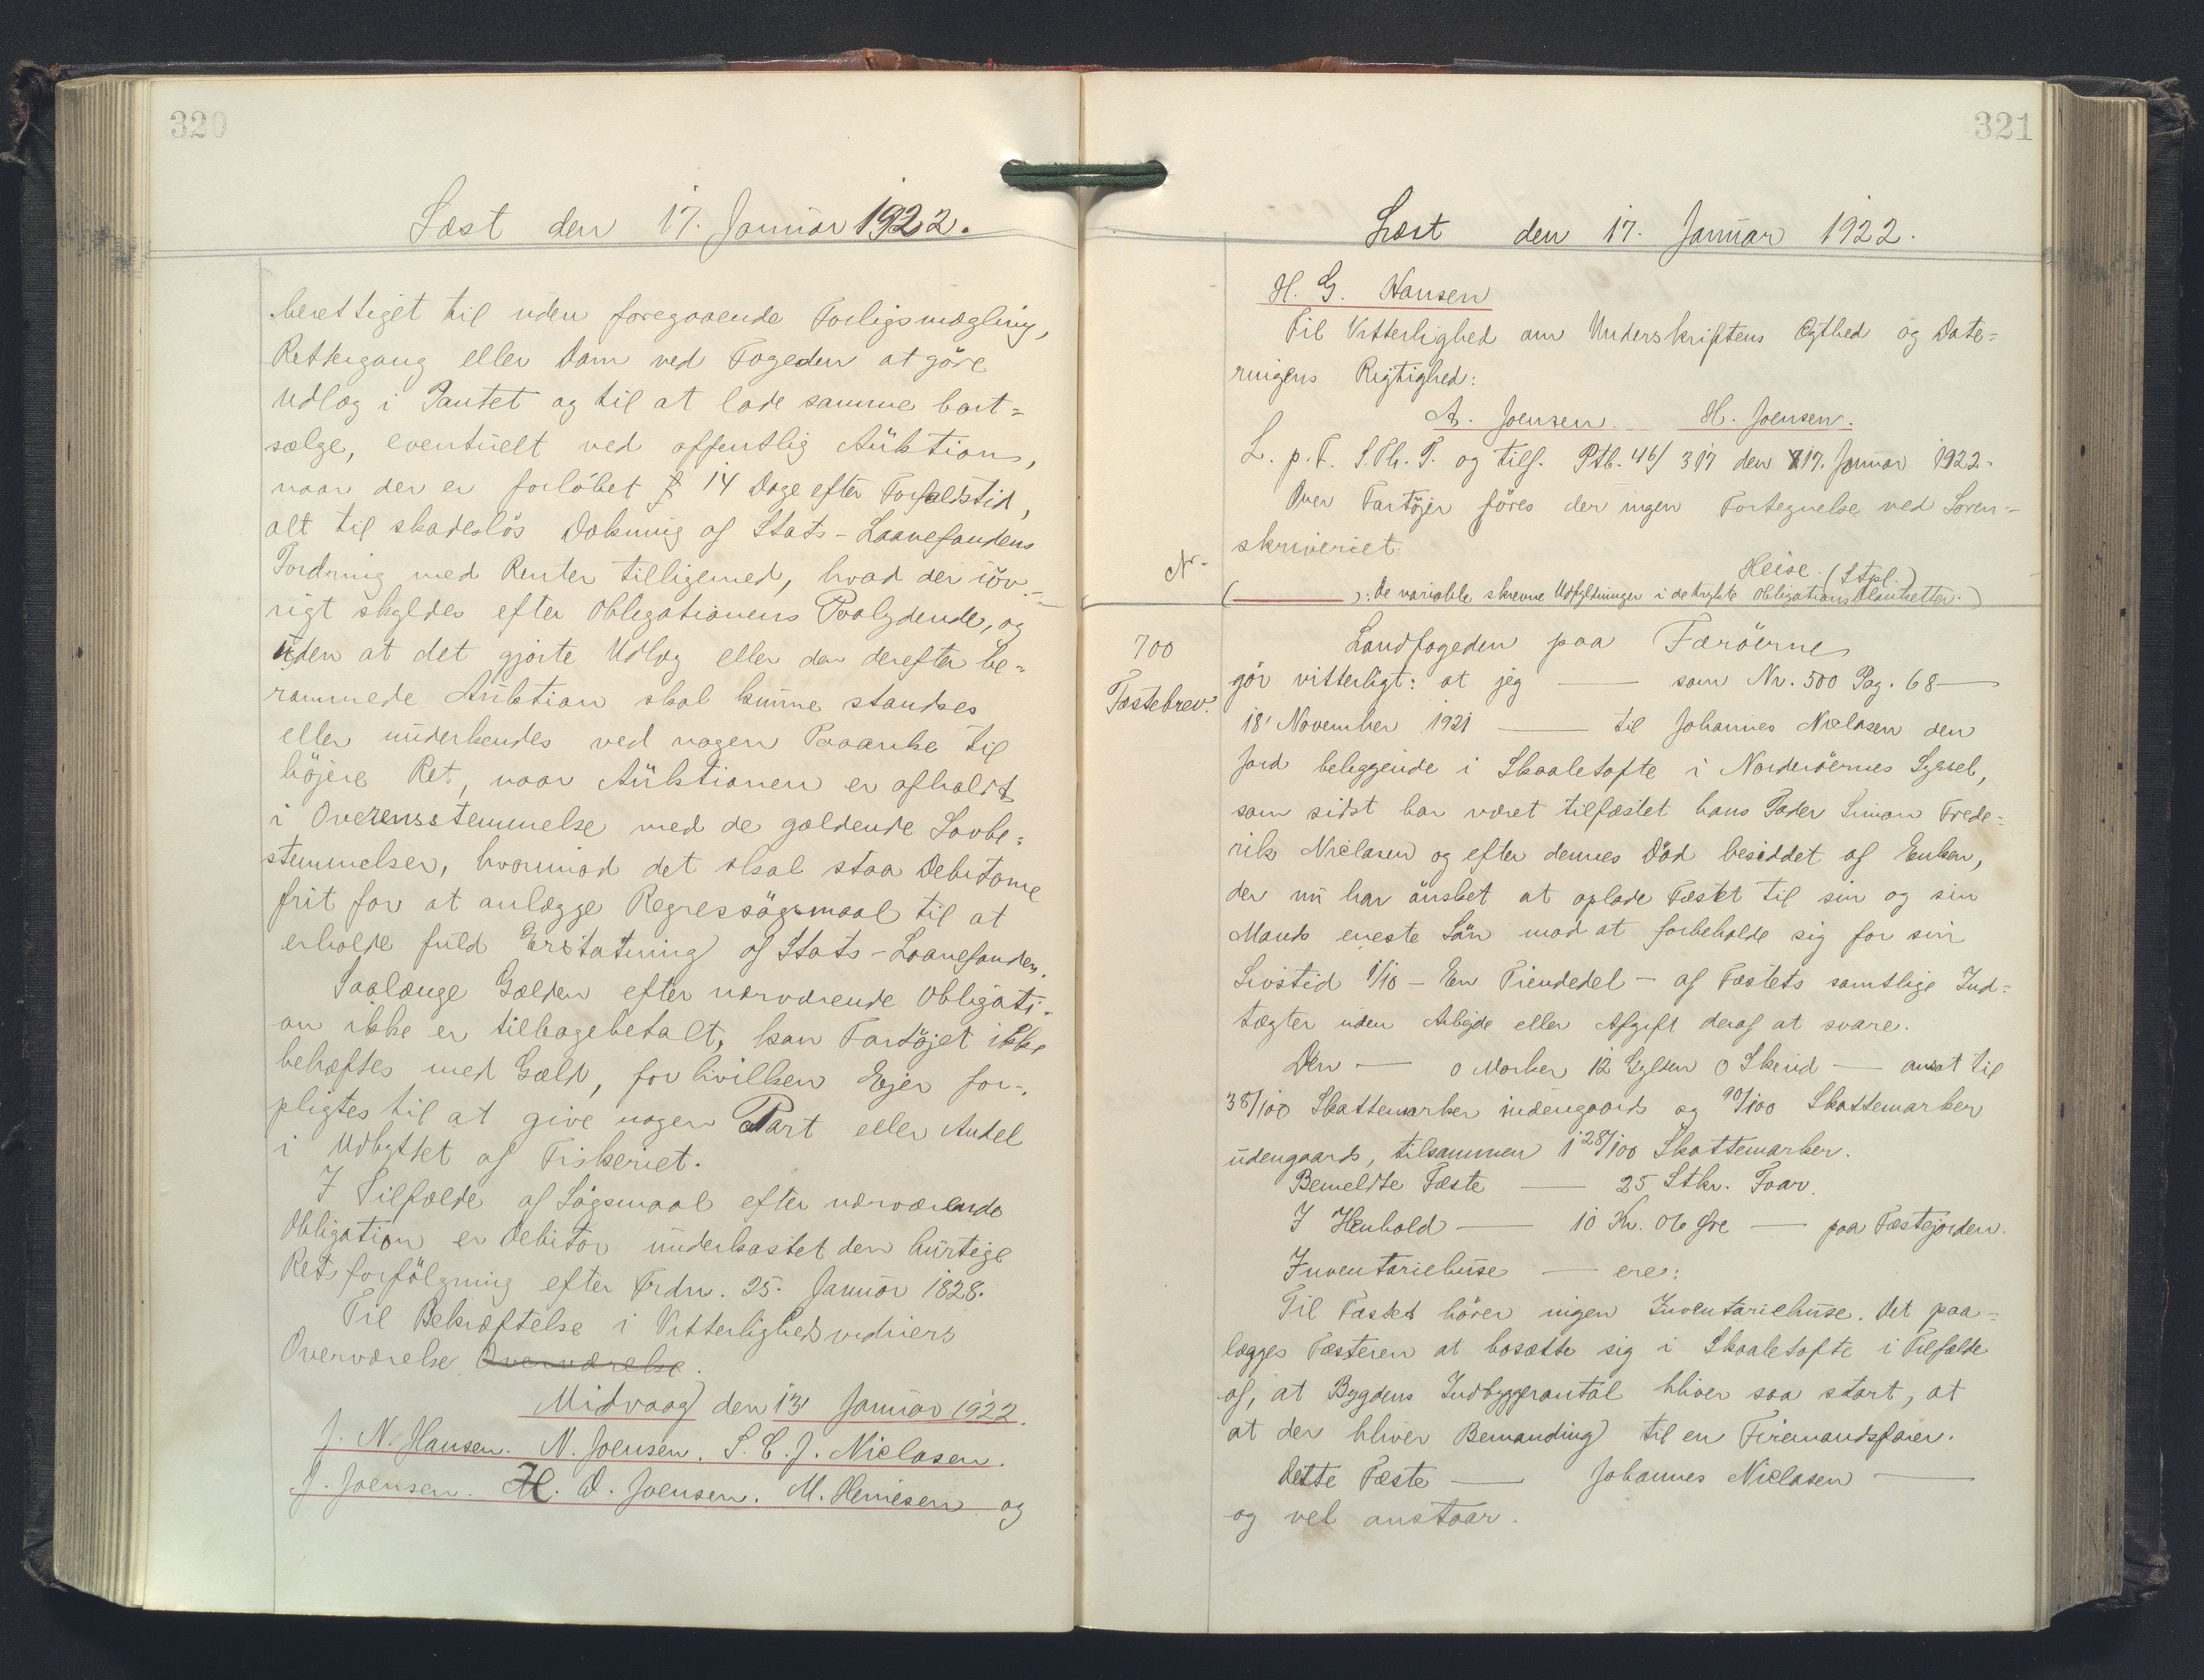 320
Læst den 17. Januar 1922.
berettiget til uden foregaaende Forligsmægling,
Rettergang eller Dom ved Fogeden at göre
Udlæg i Pantet og til at lade samme bort-
sælge, eventuelt ved offentlig Auktion,
naar der er forlöbet 14 Dage efter Forfaldstid,
alt til skadeslös Dækning af Stats-Laanefondens
Fordring med Renter tilligemed, hvad der iöv-
rigt skyldes efter Obligationens Paalydende, og
uden at det gjorte Udlæg eller den derefter be-
rammede Auktion skal kunne standses
eller underkendes ved nogen Paaanke til
höjere Ret, naar Auktionen er afholdt
i Overensstemmelse med de gældende Lovbe-
stemmelser, hvorimod det skal staa Debitorne
frit for at anlægge Regressögsmaal til at
erholde fuld Erstatning af Stats-Laanefonden.
Saalænge Gælden efter nærværende Obligati-
on ikke er tilbagebetalt, kan Fartöjet ikke
behæftes med Gæld, for hvilken Ejer for-
pligtes til at give nogen Part eller Andel
i Udbyttet af Fiskeriet.
I Tilfælde af Sögsmaal efter nærværende
Obligation er Debitor underkastet den hurtige
Retsforfölgning efter Frdn. 25. Januar 1828.
Til Bekræftelse i Vitterlighedsvidners
Overværelse Overværelse.
Midvaag den 13' Januar 1922.
J. N. Hansen. N. Joensen. S. C. J. Niclasen.
J. Joensen. H. D. Joensen. M. Heinesen og
321
Læst den 17. Januar 1922.
H. G. Hansen
Til Vitterlighed om Underskriftens Ægthed og Date-
ringens Rigtighed:
A. Joensen. H. Joensen.
L. p. F. S. Th. T. og tilf. Ptb. 46/317 den 17. Januar 1922.
Over Fartöjer föres der ingen Fortegnelse ved Soren-
skriveriet.
Heise. (Stpl.)
( ): De variable skrevne Udfyldninger i de trykte Obligationsblanketter.)
Nr.
700
Fæstebrev.
Landfogeden paa Færöerne
gör vitterligt: at jeg — som Nr. 500 Pag. 68 —
18' November 1921 — til Johannes Niclasen den
Jord beliggende i Skaaletofte i Norderöernes Syssel,
som sidst har været tilfæstet hans Fader Simon Frede-
rik Niclasen og efter dennes Död besiddet af Enken,
der nu har önsket at oplade Fæstet til sin og sin
Mands eneste Sön mod at forbeholde sig for sin
Livstid 1/10 - En Tiendedel - af Fæstets samtlige Ind-
tægter uden Arbejde eller Afgift deraf at svare.
Den — 0 Marker 12 Gylden 0 Skind — ansat til
38/100 Skattemarker indengaards og 90/100 Skattemarker
udengaards, tilsammen 1 28/100 Skattemarker.
Bemeldte Fæste — 25 Stkr. Faar.
I Henhold — 10 Kr. 06 Öre — paa Fæstejorden.
Inventariehuse — ere:
Til Fæstet hörer ingen Inventariehuse. Det paa-
lægges Fæsteren at bosætte sig i Skaaletofte i Tilfælde
af, at Bygdens Indbyggerantal bliver saa stort, at
at der bliver Bemanding til en Firemandsfarer.
Dette Fæste — Johannes Niclasen —
og vel anstaar.